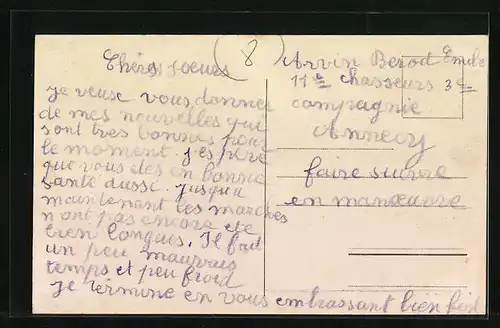 Chères soeurs
je veuse vous donner
de mes nouvelles qui
sont tres bonnes pour
le moment. j'espère
que vous etes en bonne
santé ausse. jusqu'a
maintenant les marches
n ont pas encore ete
bien longues. Il fait
un peu mauvais
temps et peu froid
je termine en vous embrassant bien fort
(8)
Arvin Berod Emile
11e chasseurs 3e
compagnie
Annecy
faire suivre
en manœuvre